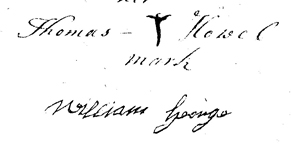 Thomas - † Howel
mark
William George